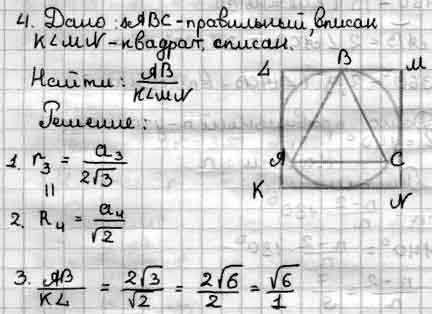 4. Дано: △ABC - правильный, вписан
KLMN - квадрат, описан.
Найти: AB/KLMN
Решение:
1. r₃ = a₃/2√3
||
2. R₄ = a₄/√2
3. AB/KL = 2√3/√2 = 2√6/2 = √6/1
L B M
A C
K N